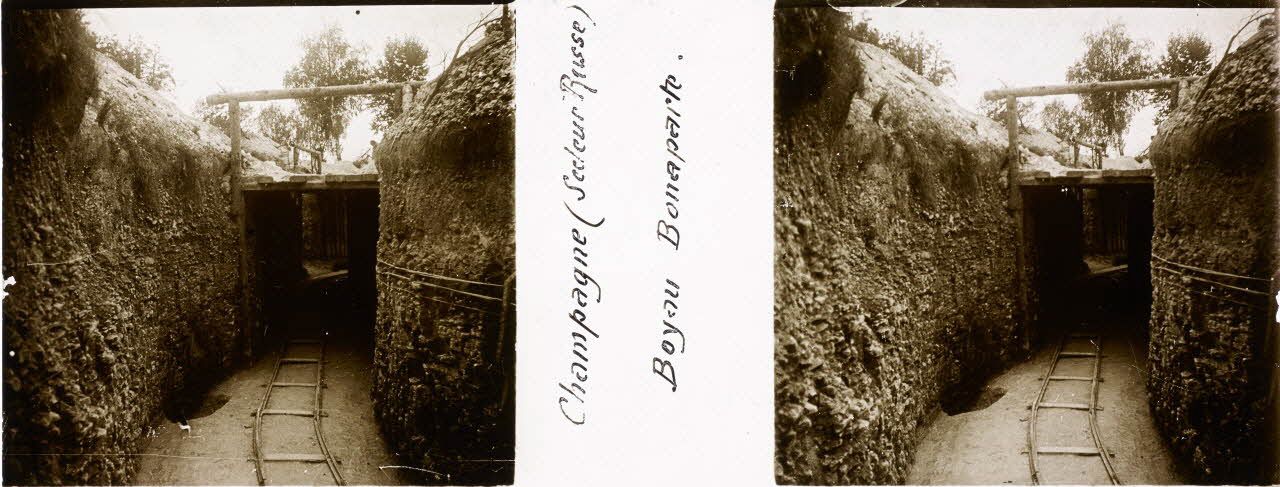 Champagne (Secteur Russe)
Boyau Bonaparte.